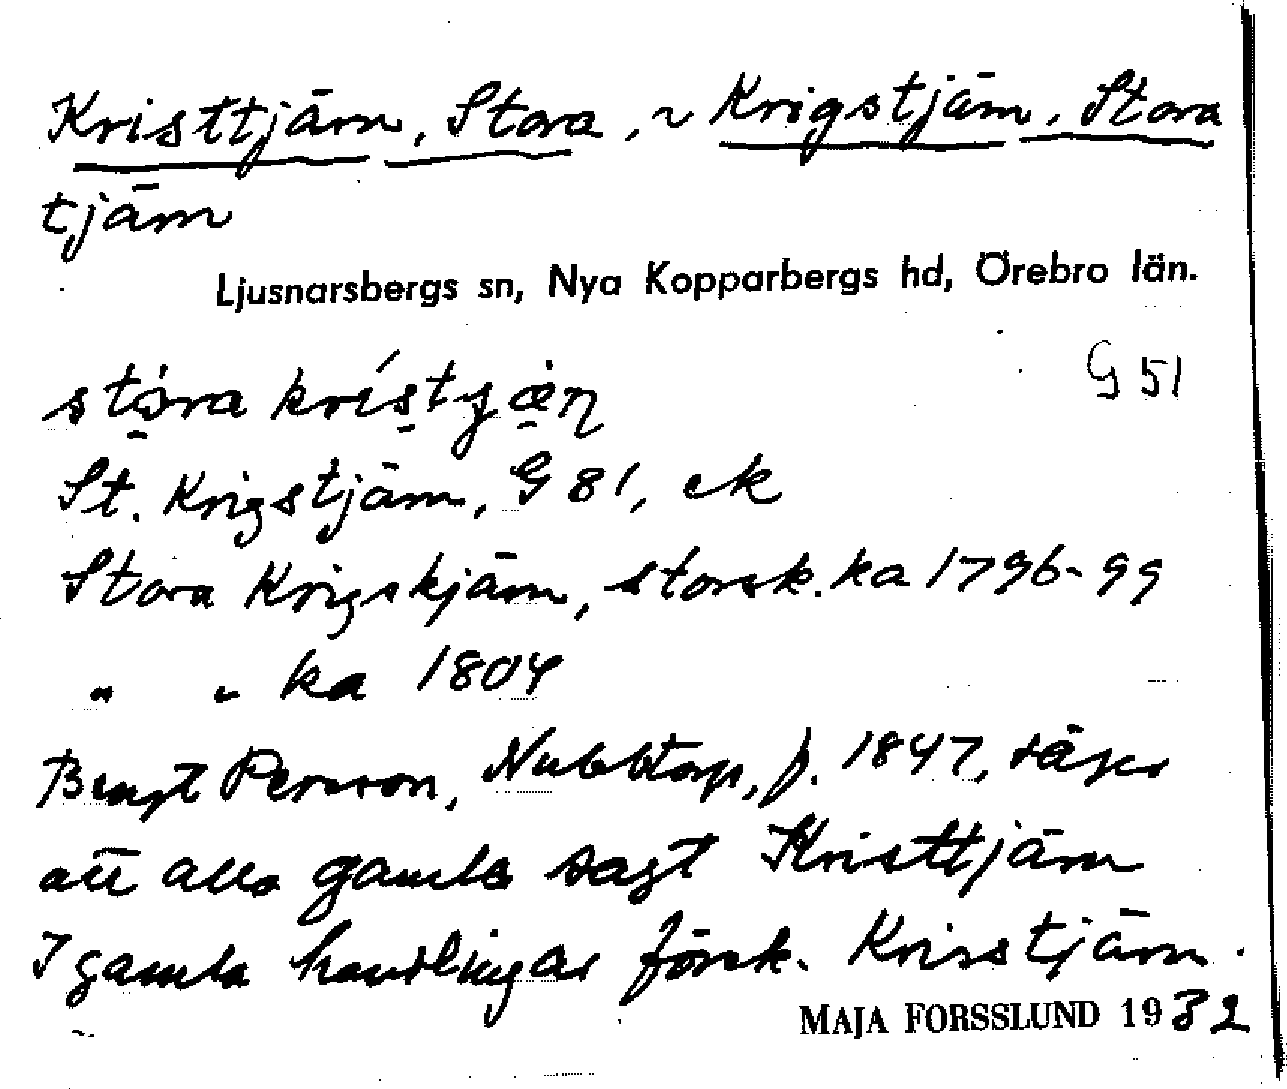 Kristtjärn, Stora, ~ Krigstjärn, Stora
tjärn
Ljusnarsbergs sn, Nya Kopparbergs hd, Örebro län.
G 51
stóra krístjæɳ
St. Krigstjärn, G 81, ek
Stora Krigskjärn, storsk. ka 1796-99
" " ka 1804
Bengt Persson, Nubbtorp, f. 1847, säger
att alla gamla sagt Kristtjärn
I gamla handlingar försk. Krisstjärn.
MAJA FORSSLUND 1932